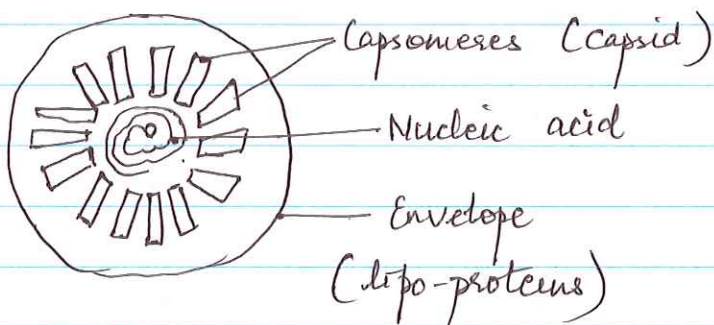 Capsomeres (Capsid)
Nucleic acid
Envelope
(lipo-proteins)